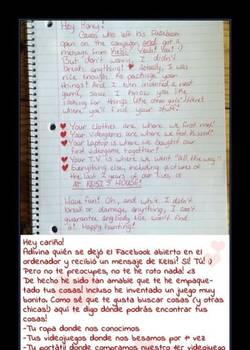 Hey Honey!
Guess who left his Facebook
open on the computer and got a
message from Keisi! Yeah! You! :)
But don't worry, I didn't
break anything! ♥ Actually, I was
nice enough to package your
things! And I even invented a neat
game, since I know you like
looking for things (like other girls) I'll tell
where you'll find your stuff!
♥ Your clothes are where we first met!
♥ Your videogames are where we first kissed!
♥ Your laptop is where we bought our
first videogame together!
♥ Your T.V is where we went "all the way"
♥ Everything else, including pictures of
the last 2 years of our lives is
AT KEISI'S HOUSE!
Have fun! Oh, and while I didn't
break or damage, anything, I can't
guarantee anybody else won't find
it! Happy hunting!
Hey cariño!
Adivina quién se dejó el Facebook abierto en el
ordenador y recibió un mensaje de Keisi! Sí! TÚ! :)
Pero no te preocupes, no he roto nada! <3
De hecho he sido tan amable que te he empaque-
tado tus cosas! Incluso he inventado un juego muy
bonito. Como sé que te gusta buscar cosas (y otras
chicas) aquí te digo dónde podrás encontrar tus
cosas!
-Tu ropa donde nos conocimos
-Tus videojuegos donde nos besamos por 1ª vez
-Tu portátil donde compramos nuestro 1er videojuego